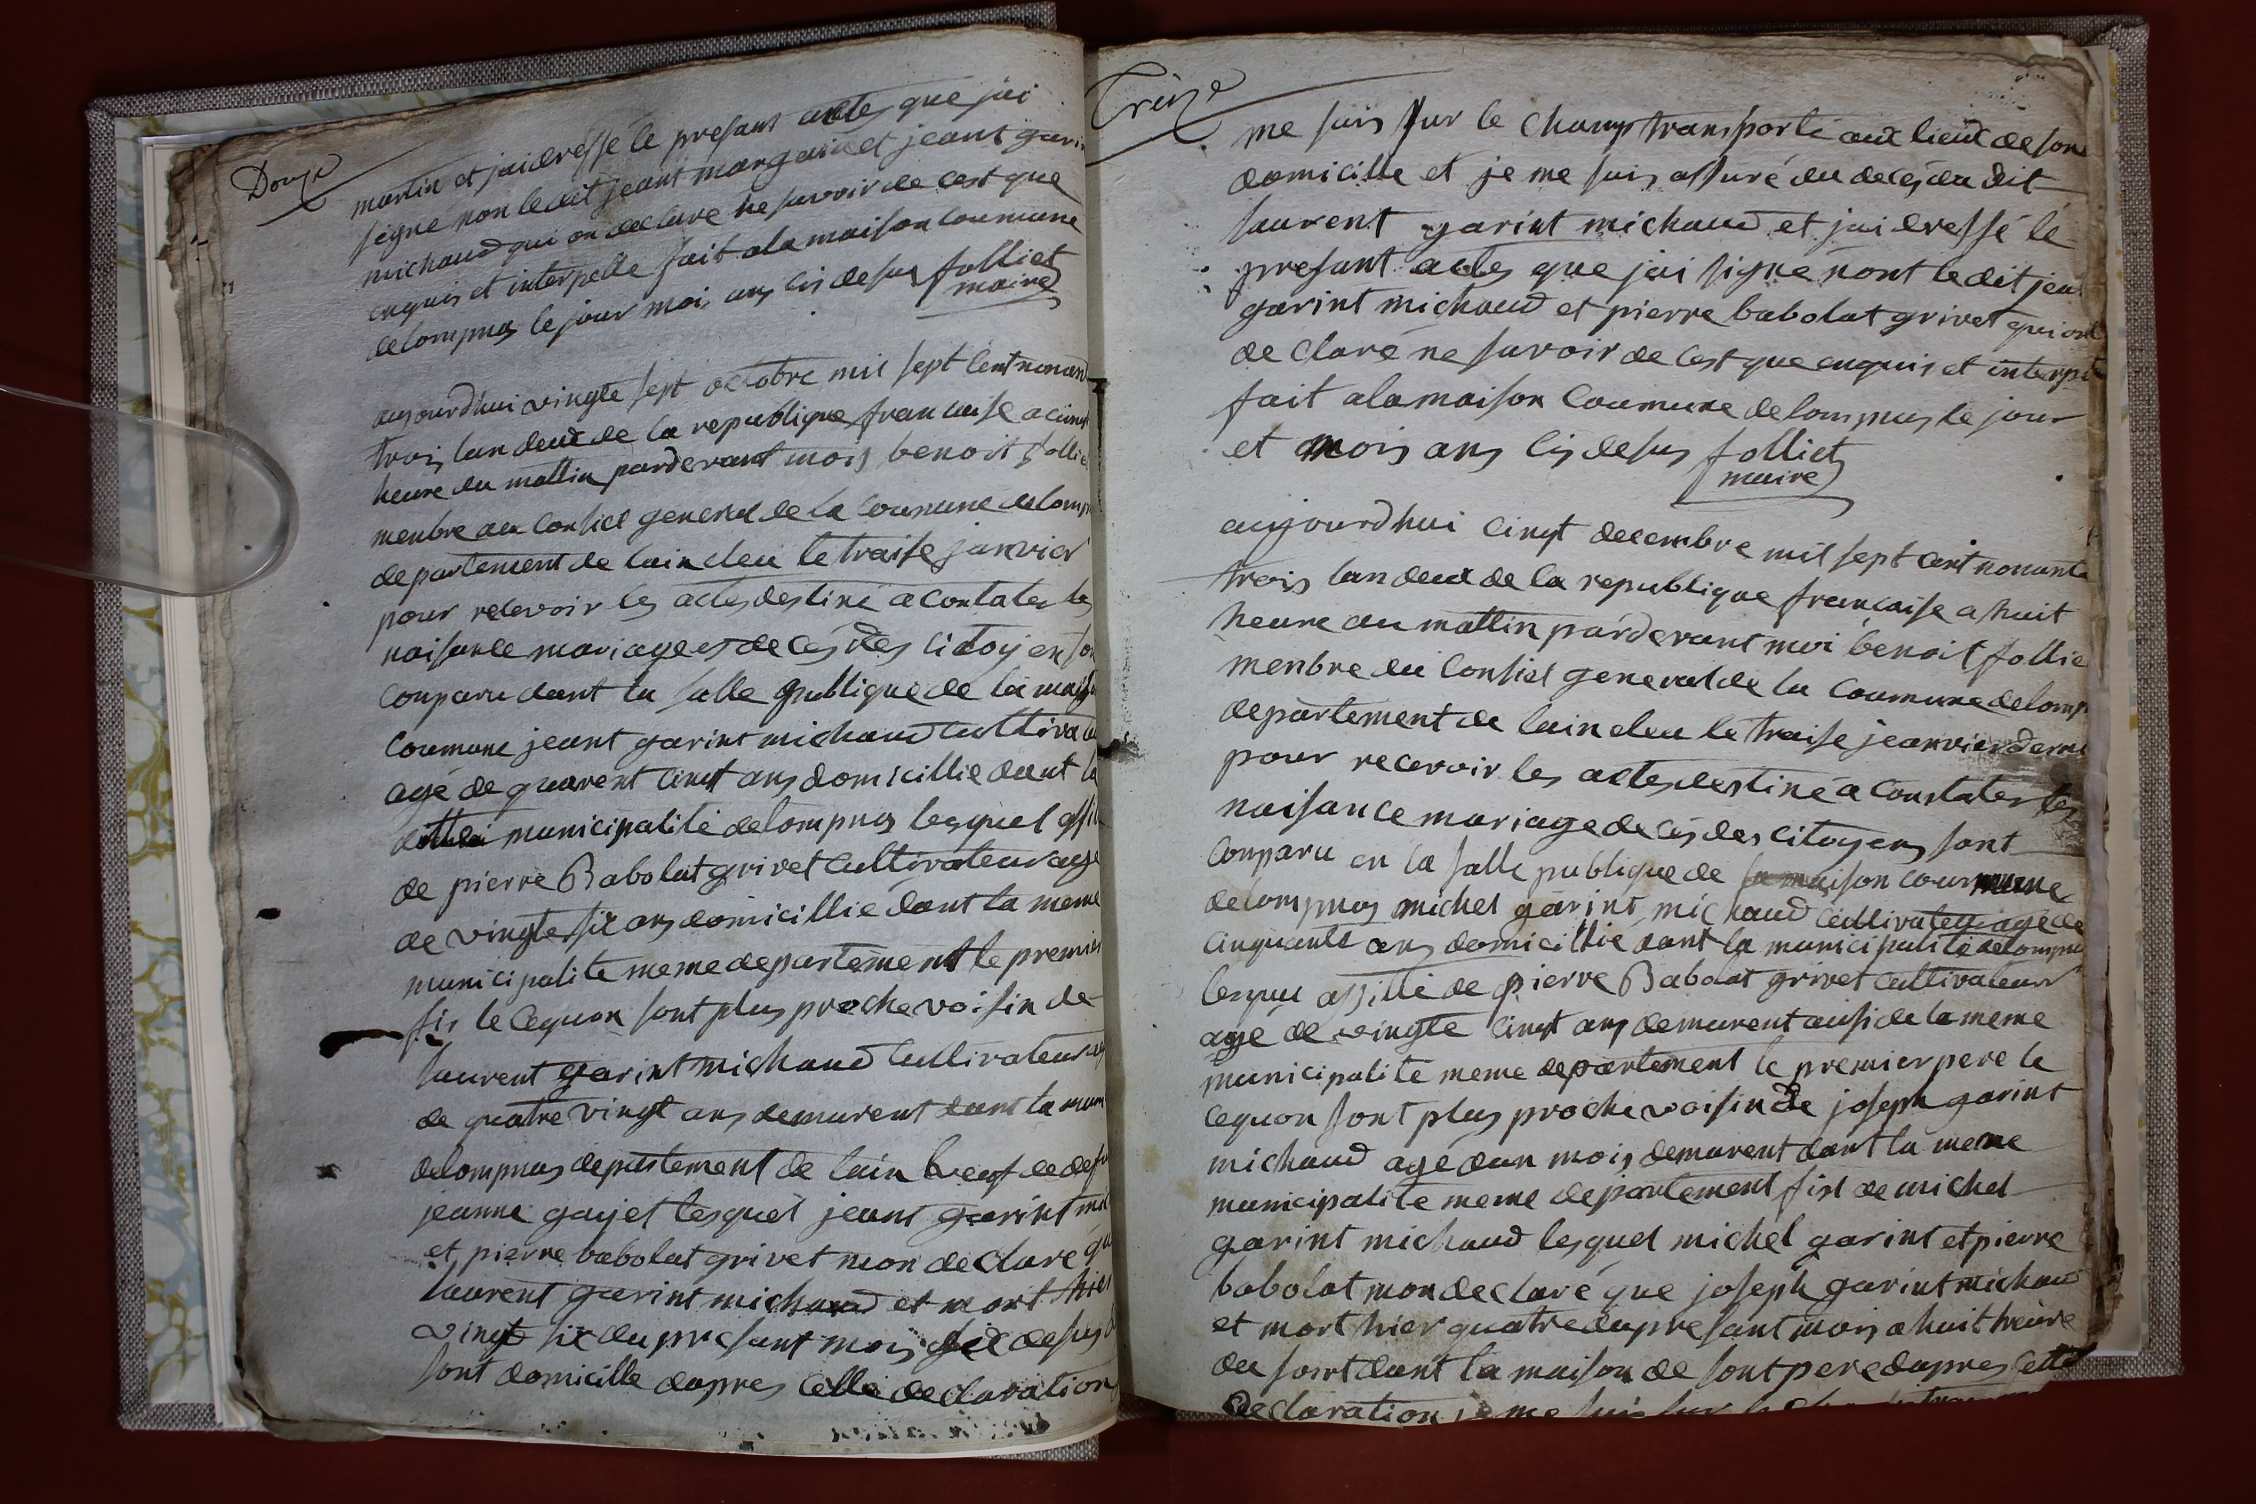 Douze
martin et jai dressé le presant actes que jai
signe non le dit jeant margain et jeant garin
michaud qui on declare ne savoir de cest que
enquis et interpelle fait a la maison coumune
delompnas le jour mois ans cis desus folliet
maire
aujourdhui vingte sept octobre mil sept cent nonant
trois lan deux de la republique francaise a cinq
heure du mattin pardevant mois benoit follie
menbre du consiel general de la coumune delomp
departement de lain eleu le traise janvier
pour recevoir les actes destiné a contater les
naisance mariage et decés des citoyen son
conparu dant la salle publique de la maison
coumune jeant garint michaud cultivateu
agé de quarent cinqt ans domicillie dant la
municipalité delompnas lesquel assi
de pierre Babolat grivet cultivateur age
de vingte six ans domicillié dant la meme
municipalite meme departement le premier
fis le cequon sont plus proche voisin de
laurent garint michaud cultivateur ag
de quatre vingt ans demurent dant la mun
delompnas departement de lain veuf de def
jeanne gayet lesquel jeant garint mi
et pierre babolat grivet mon declare qu
laurent garint michaud et mort hier
vingt six du presant mois desus d
sont domicille dapres celle declaration
Treize
me suis sur le champ transporté aux lieux de son
domicille et je me suis assuré du decés du dit
laurent garint michaud et jai dressé le
presant actes que jai signe nont le dit jeu
garint michaud et pierre babolat grivet qui ont
declaré ne savoir de cest que enquis et interpe
fait a la maison coumune delompnas le jour
et mois ans cis desus folliet
maire
aujourdhui cinqt decembre mil sept cent nonante
trois lan deux de la republique francaise a huit
heure du mattin pardevant moi benoit follie
menbre du consiel general de la coumune delomp
departement de lain eleu le traise jeanvier derni
pour recevoir les actes destiné a constater les
naisance mariage decés des citoyens sont
conparu en la salle publique de la maison coumune
delompnas michel garint michaud cultivateur agé de
cinquante ans domicillié dant la municipalité delompna
lesquel assillé de pierre Babolat grivet cultivateur
agé de vingte cinqt ans demurent ausi de la meme
municipalité meme departement le premier pere le
cequon sont plus proche voisin de joseph garint
michaud agé dun mois demurent dant la meme
municipalite meme departement fisl de michel
garint michaud lesquel michel garint et pierre
babolat mon declaré que joseph garint michaud
et mort hier quatre du presant mois a huit heure
du soirt dant la maison de sont pere dapres cette
declaration je me suis sur le